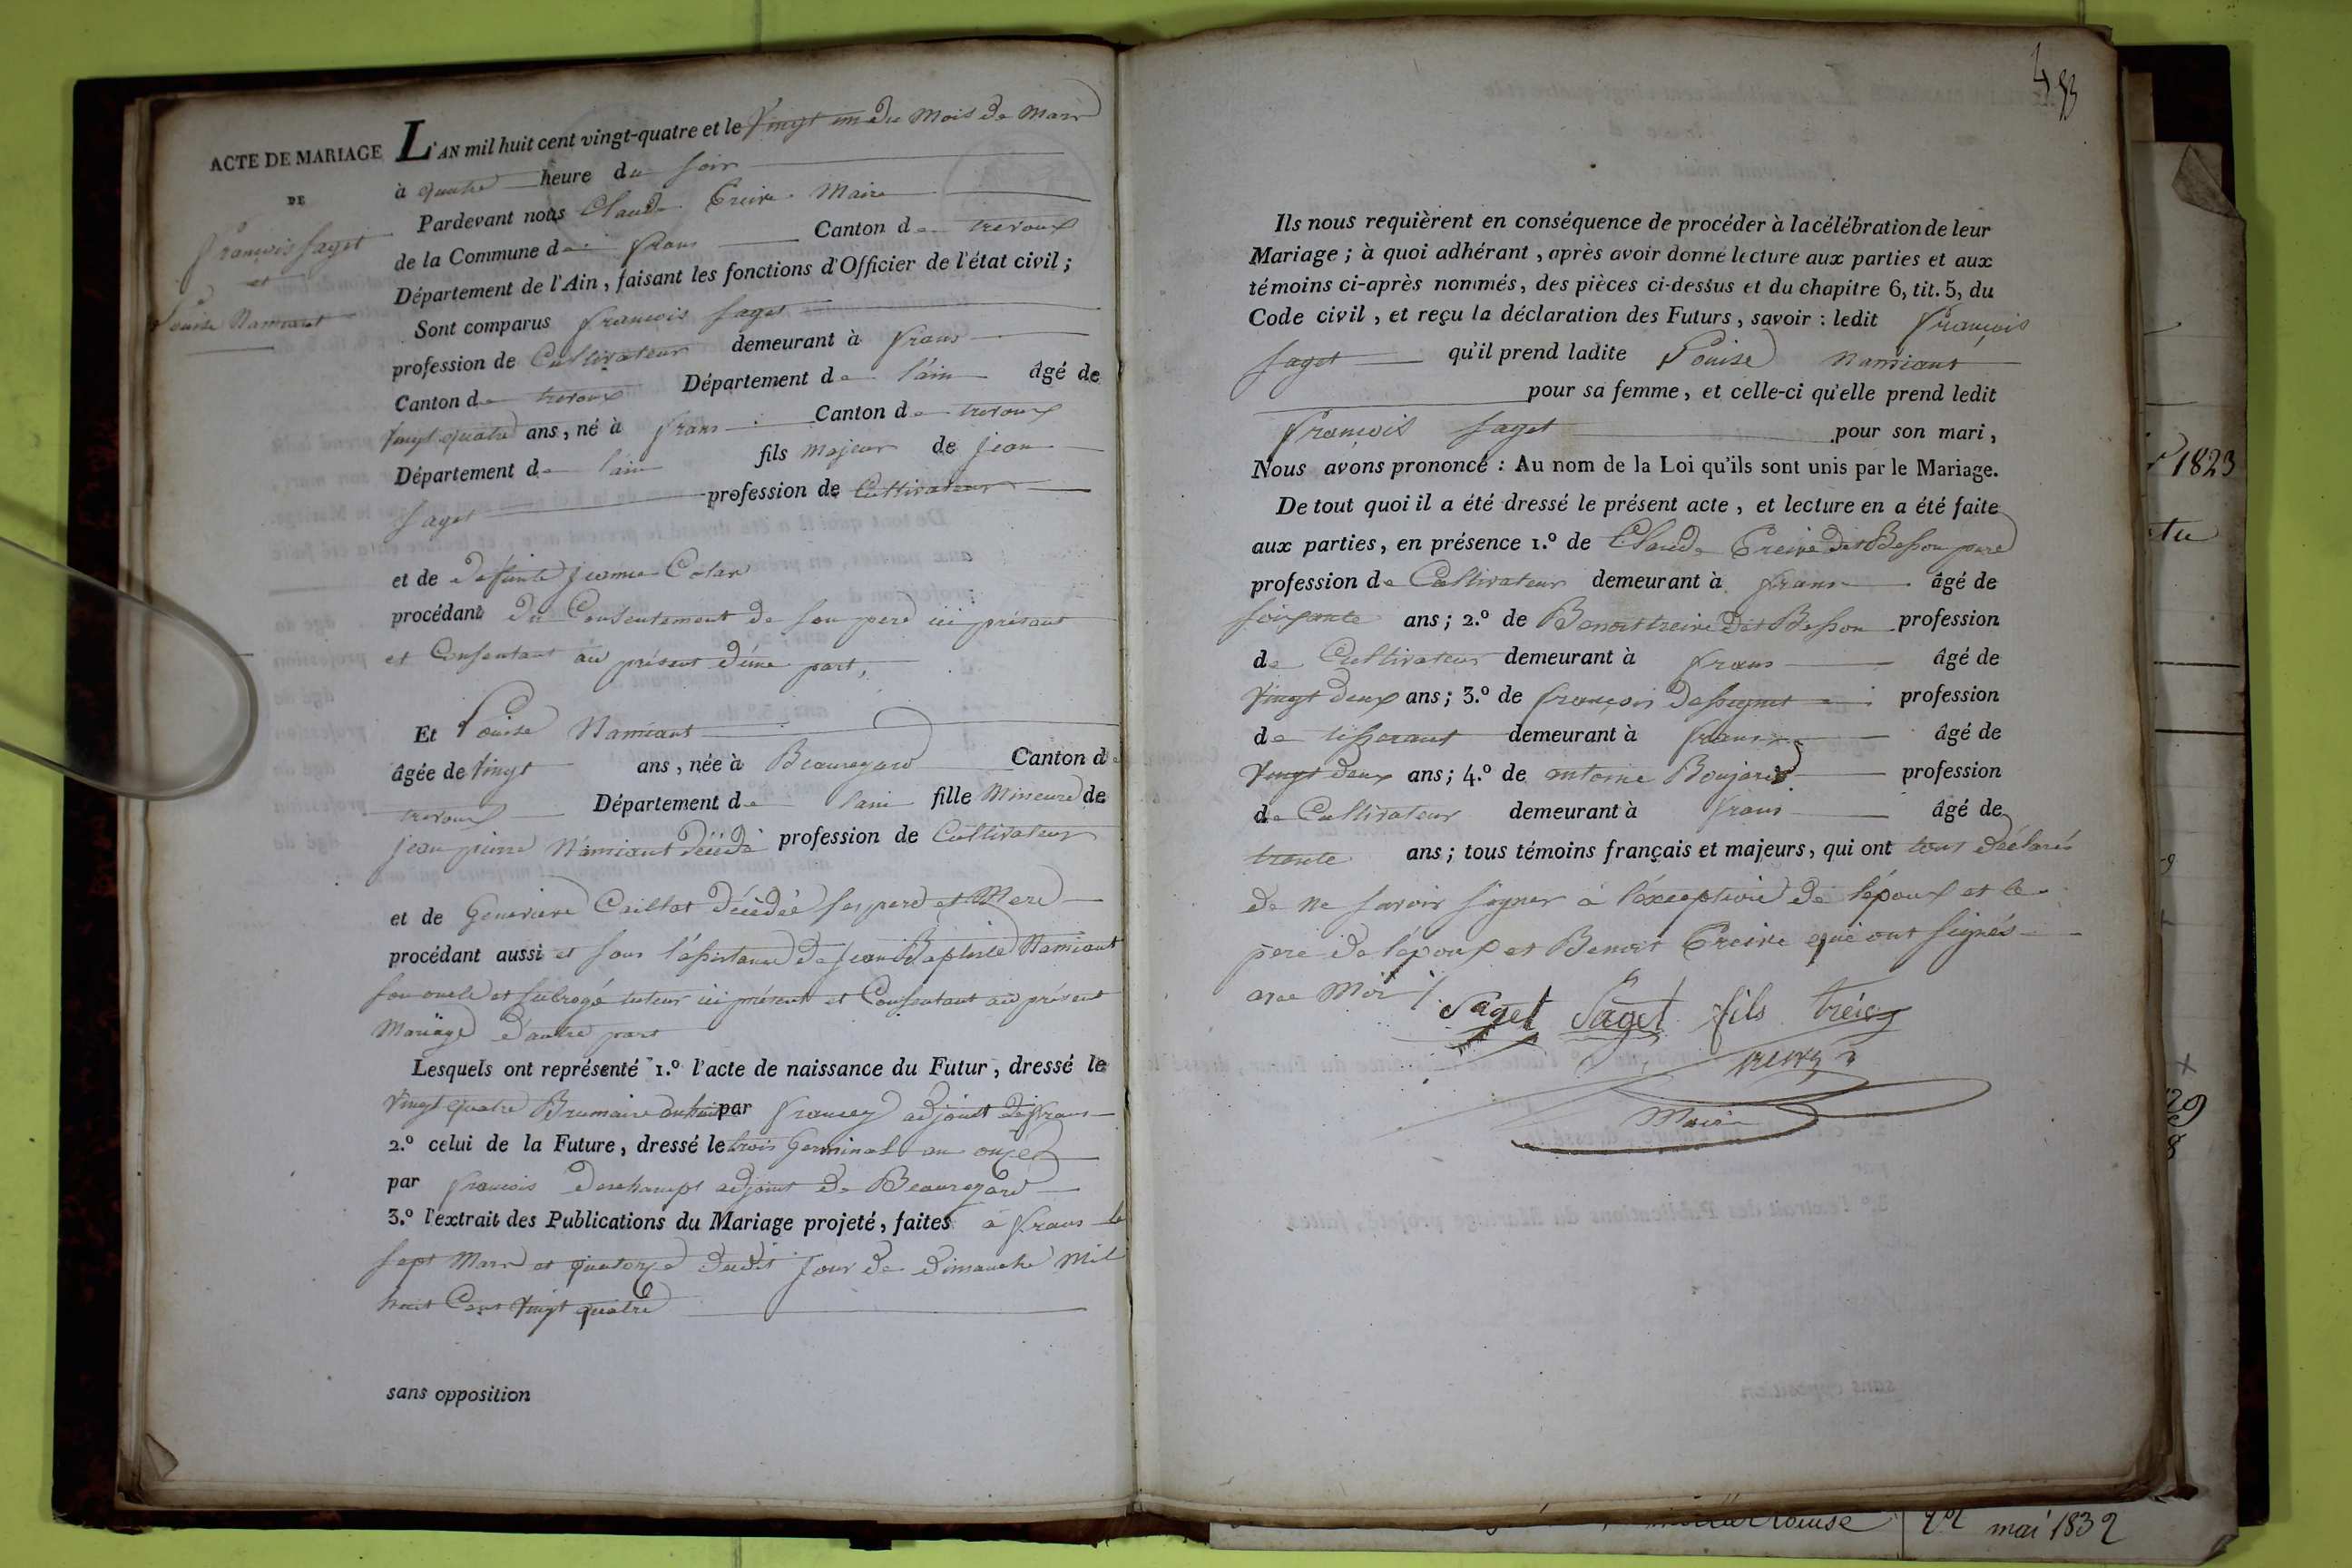 ACTE DE MARIAGE
DE
François Saget
et
Louise Namiant
L'AN mil huit cent vingt-quatre et le Vingt un du Mois de Mars
à quatre heure du soir
Pardevant nous Claude Treive Maire
de la Commune de frans Canton de trevoux
Département de l'Ain, faisant les fonctions d'Officier de l'état civil;
Sont comparus françois Saget
profession de Cultivateur demeurant à frans
Canton de trevoux Département de l'ain âgé de
Vingt quatre ans, né à frans Canton de trevoux
Département de l'ain fils Majeur de jean
Saget profession de Cultivateur
et de défunte jeanne
procédant du Consentement de son pere ici présant
et Consentant au présent d'une part,
Et Louise Namiant
âgée de Vingt ans, née à Beauregard Canton de
trevoux Département de l'ain fille Mineure de
jean pierre Namiant décédé profession de Cultivateur
et de Genevieve Caillat décédée ses pere et Mere
procédant aussi et sous l'assistance de jean Baptiste Namiant
son oncle et subrogé tuteur ici présent et Consentant au présent
Mariage d'autre part
Lesquels ont représenté 1.º l'acte de naissance du Futur, dressé le
Vingt quatre Brumaire an huit par francey adjoint de frans
2.º celui de la Future, dressé le trois Germinal an onze
par françois Deschamps adjoint de Beauregard
3.º l'extrait des Publications du Mariage projeté, faites à frans le
sept Mars et quatorze dudit jour de Dimanche Mil
huit Cent Vingt quatre
sans opposition
Ils nous requièrent en conséquence de procéder à la célébration de leur
Mariage; à quoi adhérant, après avoir donné lecture aux parties et aux
témoins ci-après nommés, des pièces ci-dessus et du chapitre 6, tit. 5, du
Code civil, et reçu la déclaration des Futurs, savoir: ledit françois
Saget qu'il prend ladite Louise Namiant
pour sa femme, et celle-ci qu'elle prend ledit
françois Saget pour son mari,
Nous avons prononcé: Au nom de la Loi qu'ils sont unis par le Mariage.
De tout quoi il a été dressé le présent acte, et lecture en a été faite
aux parties, en présence 1.º de Claude Treive dit Besson pere
profession de Cultivateur demeurant à frans âgé de
soixante ans; 2.º de Benoit treive dit Besson profession
de Cultivateur demeurant à frans âgé de
Vingt deux ans; 3.º de françois profession
de tisserant demeurant à frans âgé de
Vingt deux ans; 4.º de antoine Boujard profession
de Cultivateur demeurant à frans âgé de
trente ans; tous témoins français et majeurs, qui ont tous déclarés
de ne savoir signer à l'exception de l'époux et le
pere de l'époux et Benoit Treive qui ont signés
avec Moi
Saget Saget fils
Maire
1823
mai 1832